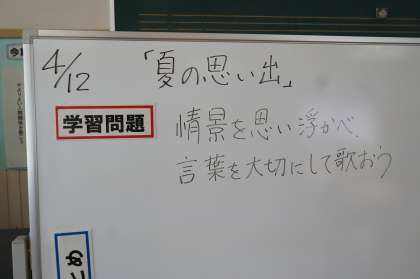 4/12
「夏の思い出」
学習問題
情景を思い浮かべ、
言葉を大切にして歌おう
とめ